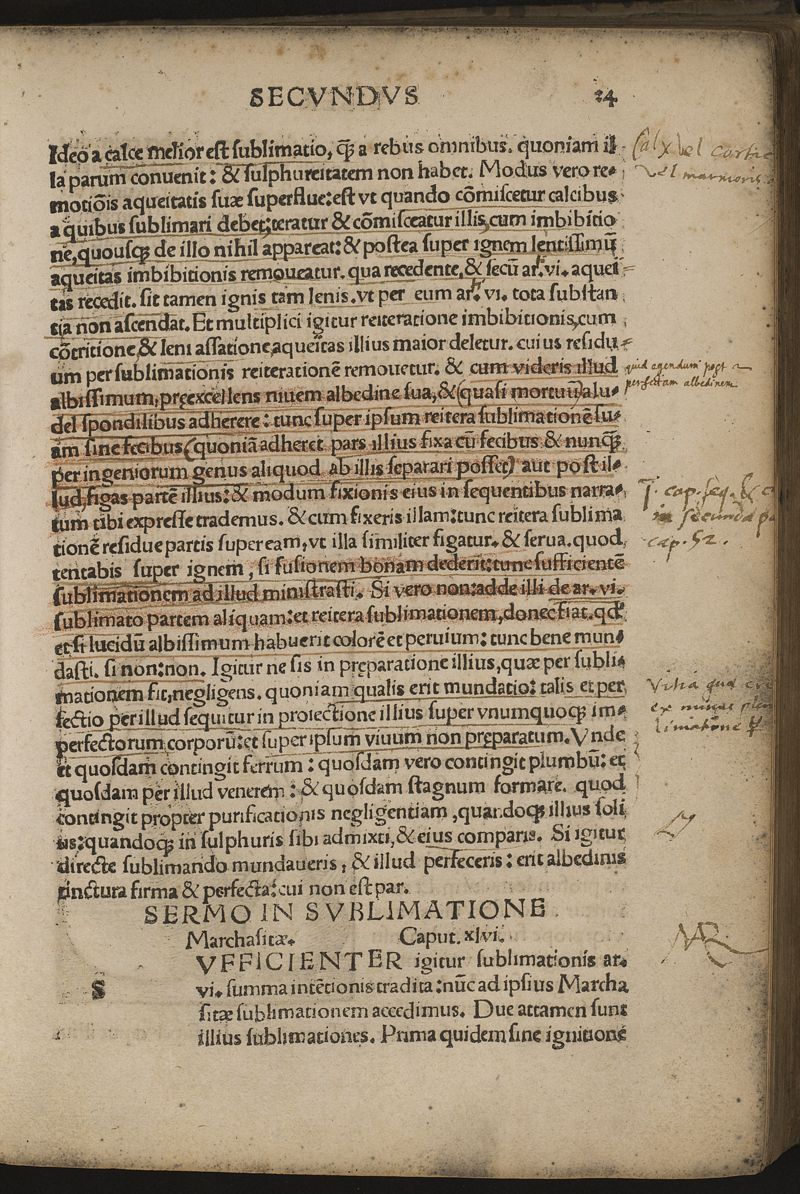 SECVNDVS 24
Ideo a calce melior est sublimatio, q̃ a rebus omnibus. quoniam il⸗
la parum conuenit: & sulphureitatem non habet. Modus vero re⸗
motiõis aqueitatis suæ superflue: est vt quando cõmiscetur calcibus
a quibus sublimari debet; teratur & cõmisceatur illis, cum imbibitio
ne, quousq; de illo nihil appareat: & postea super ignem lentissimũ
aqueitas imbibitionis remoueatur. qua recedente, & secũ ar. vi. aquei⸗
tas recedit. sit tamen ignis tam lenis. vt per eum ar. vi. tota substan
tia non ascendat. Et multiplici igitur reiteratione imbibitionis, cum
cõtritione, & leni assatione, aqueitas illius maior deletur. cuius residu⸗
um per sublimationis reiterationẽ remouetur. & cum videris illud
albissimum, pręexcellens niuem albedine sua, & (quasi mortuũ) alu⸗
del spondilibus adherere: tunc super ipsum reitera sublimationẽ su⸗
am sine fecibus (quoniã adheret pars illius fixa cũ fecibus & nunq̃
per ingeniorum genus aliquod ab illis separari posset) aut post il⸗
lud, figas partẽ illius: & modum fixionis eius in sequentibus narra⸗
tum tibi expresse trademus. & cum fixeris illam: tunc reitera sublima
tionẽ residue partis super eam, vt illa similiter figatur. & serua. quod
tentabis super ignem, si fusionem bonam dederit: tunc sufficientẽ
sublimationem ad illud ministrasti. Si vero non: adde illi de ar. vi.
sublimato partem aliquam: et reitera sublimationem, donec fiat. qđ
et si lucidũ albissimum habuerit colorẽ et peruium: tunc bene mun⸗
dasti. si non: non. Igitur ne sis in pręparatione illius, quæ per subli⸗
mationem fit, negligens. quoniam qualis erit mundatio: talis et per
fectio per illud sequitur in proiectione illius super vnumquoq; im⸗
perfectorum corporũ: et super ipsum viuum non pręparatum. Vnde
et quosdam contingit ferrum: quosdam vero contingit plumbũ: et
quosdam per illud venerem: & quosdam stagnum formare. quod
contingit propter purificationis negligentiam, quandoq; illius soli
us: quandoq; in sulphuris sibi admixti, & eius comparis. Si igitur
directe sublimando mundaueris, & illud perfeceris: erit albedinis
tinctura firma & perfecta: cui non est par.
SERMO IN SVBLIMATIONE
Marchasitæ. Caput. xlvi.
S VFFICIENTER igitur sublimationis ar.
vi. summa intẽtionis tradita: nũc ad ipsius Marcha
sitæ sublimationem accedimus. Due attamen sunt
illius sublimationes. Prima quidem sine ignitione
Calx vel
vel marmoris
quid agendum post
perfectam albedinem
cap. seq. &
in secunda
cap. 52.
Vitia quae
ex